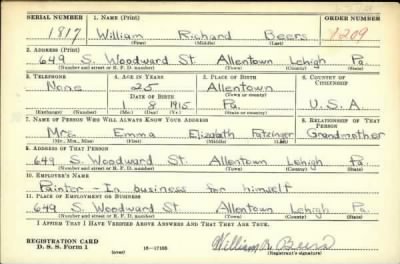 SERIAL NUMBER 1. NAME (Print) ORDER NUMBER
1817 William Richard Beers 1209
(First) (Middle) (Last)
2. ADDRESS (Print)
649 S. Woodward St. Allentown Lehigh Pa.
(Number and street or R. F. D. number) (Town) (County) (State)
3. TELEPHONE 4. AGE IN YEARS 5. PLACE OF BIRTH 6. COUNTRY OF CITIZENSHIP
None 25 Allentown
DATE OF BIRTH (Town or county)
1 8 1915 Pa. U.S.A.
(Exchange) (Number) (Mo.) (Day) (Yr.) (State or country)
7. NAME OF PERSON WHO WILL ALWAYS KNOW YOUR ADDRESS 8. RELATIONSHIP OF THAT PERSON
Mrs. Emma Elizabeth Patzinger Grandmother
(Mr., Mrs., Miss) (First) (Middle) (Last)
9. ADDRESS OF THAT PERSON
649 S. Woodward St. Allentown Lehigh Pa.
(Number and street or R. F. D. number) (Town) (County) (State)
10. EMPLOYER'S NAME
Painter - In business for himself
11. PLACE OF EMPLOYMENT OR BUSINESS
649 S. Woodward St. Allentown Lehigh Pa.
(Number and street or R. F. D. number) (Town) (County) (State)
I AFFIRM THAT I HAVE VERIFIED ABOVE ANSWERS AND THAT THEY ARE TRUE.
REGISTRATION CARD
D. S. S. Form 1 (over) 16—17105 William R. Beers
(Registrant's signature)